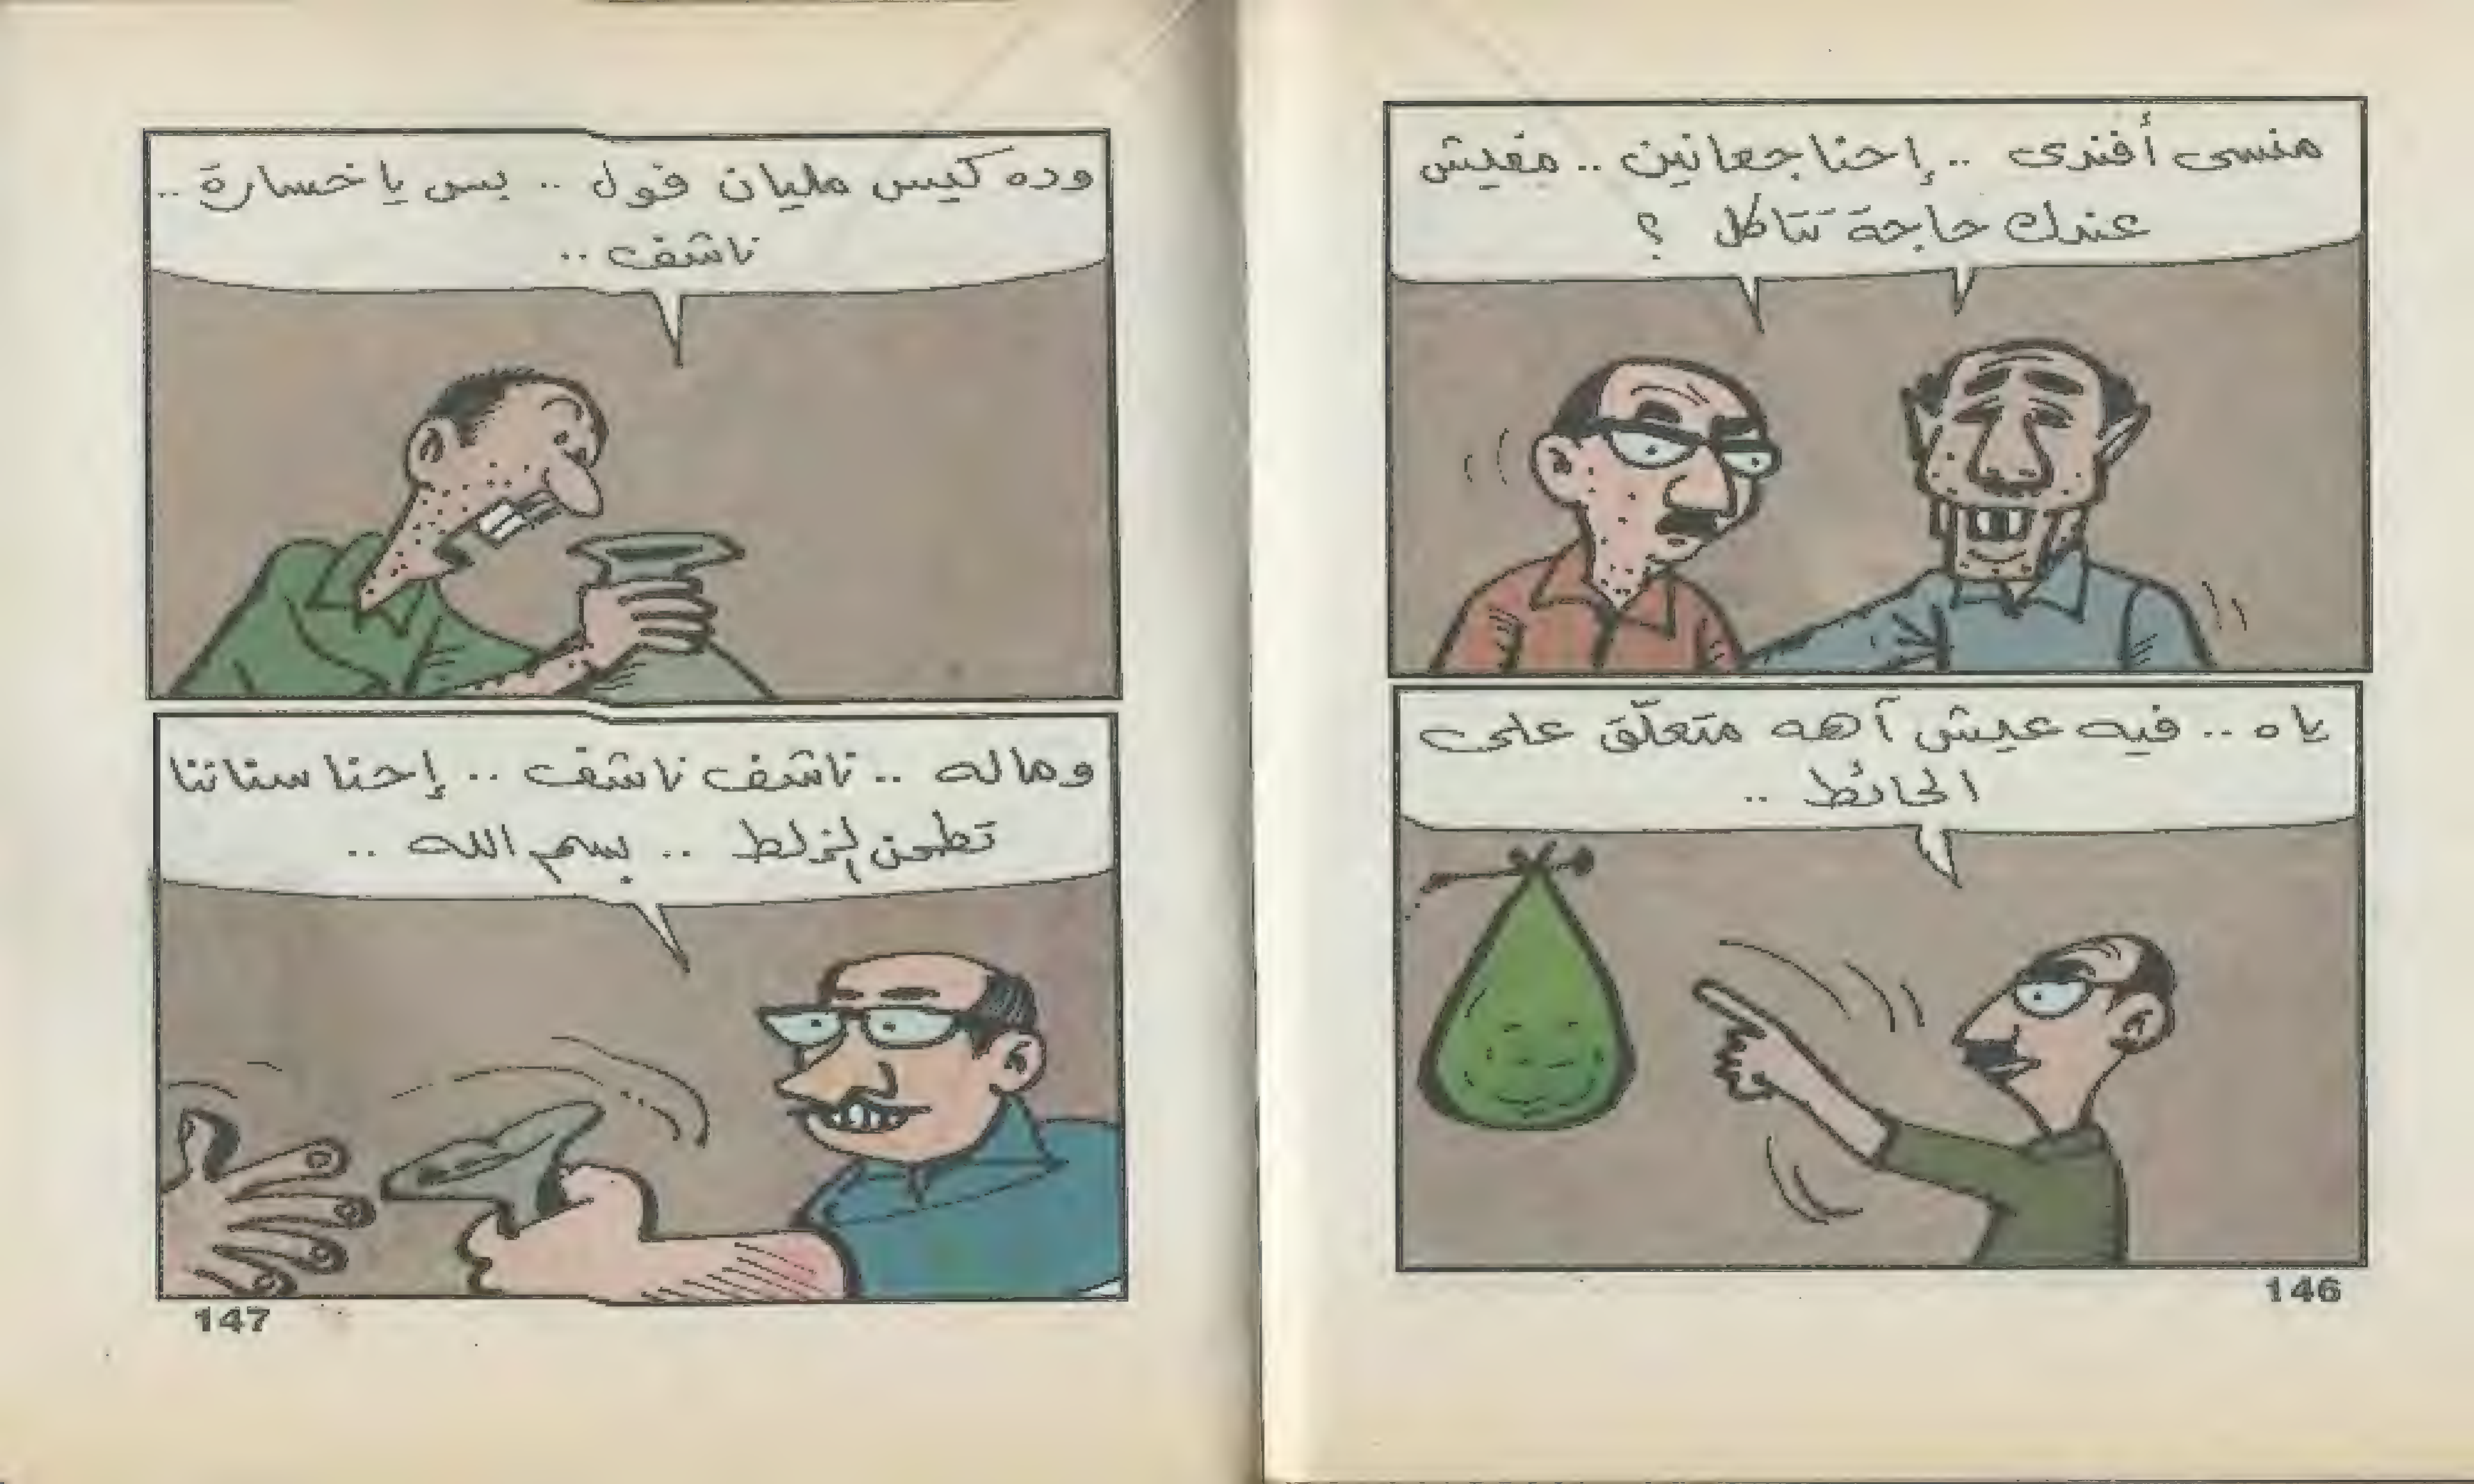 منسى أفندى .. إحنا جعانين .. مفيش
عندك حاجة تتاكل ؟
ياه .. فيه عيش آهه متعلّق على
الحائط ..
146
وده كيس مليان فول .. بس يا خسارة ..
ناشف ..
وماله .. ناشف ناشف .. إحنا سناننا
تطحن الزلط .. بسم الله ..
147